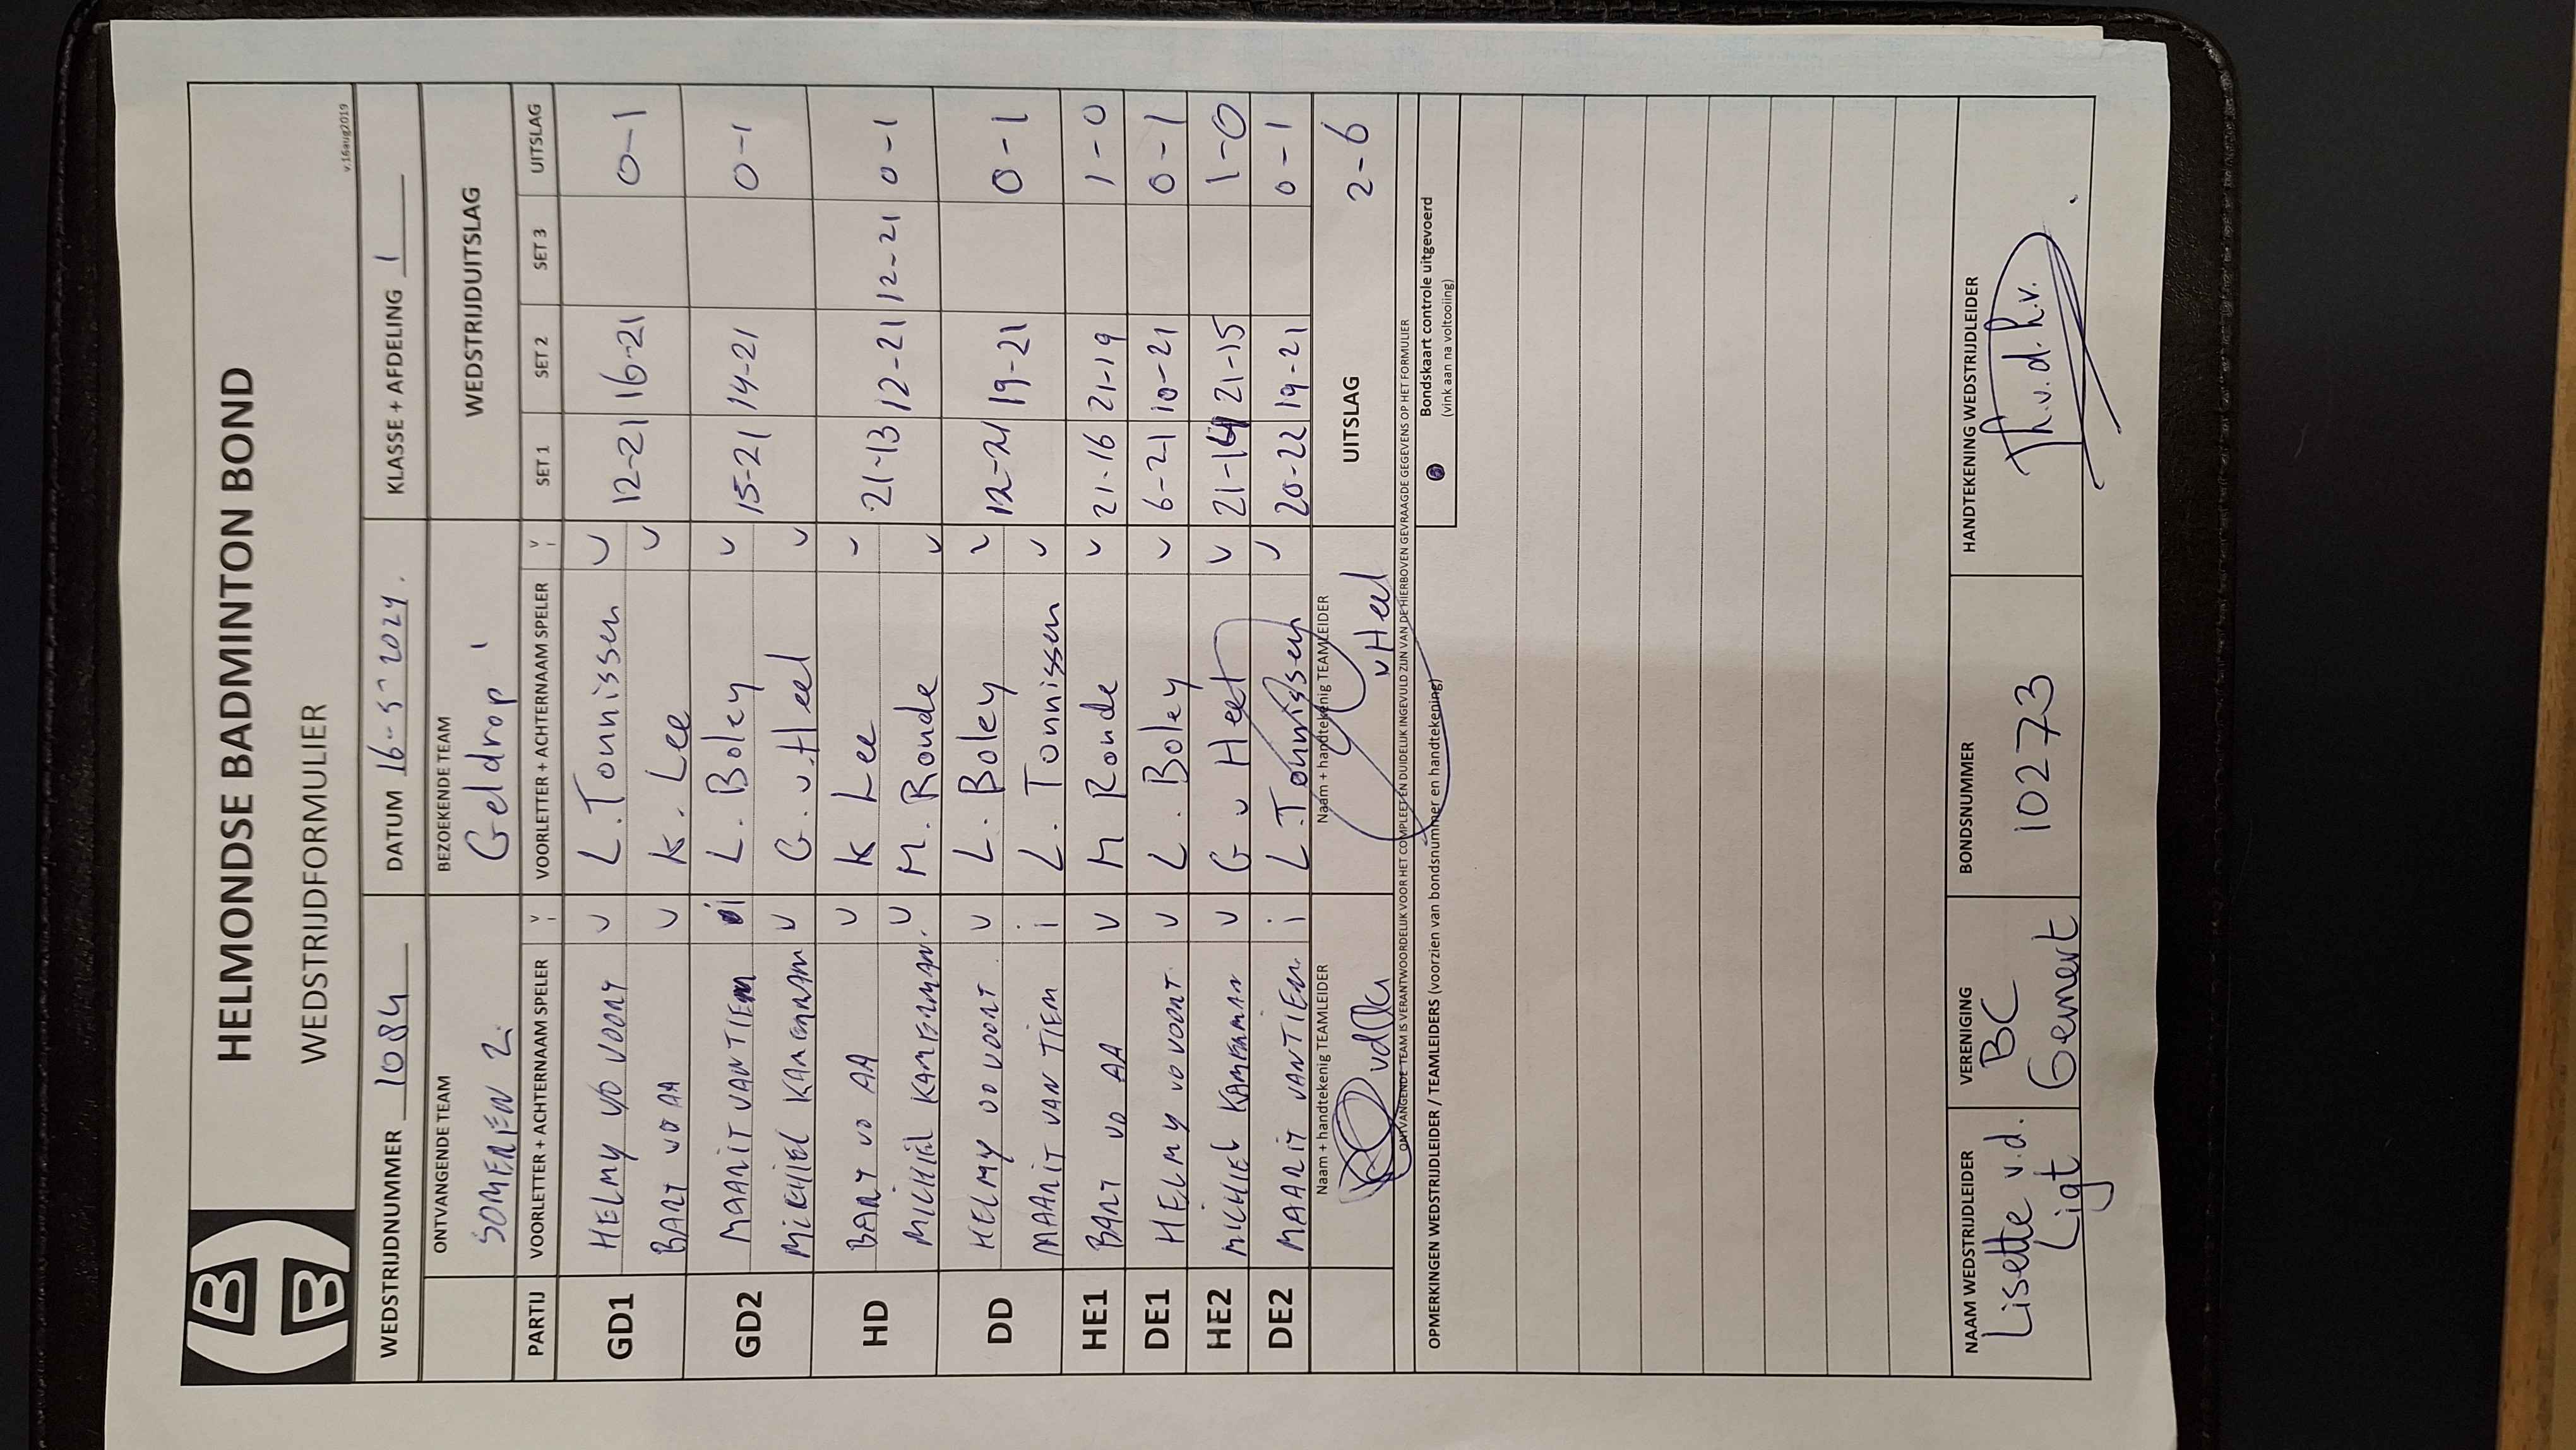 HELMONDSE BADMINTON BOND
WEDSTRIJDFORMULIER
v.16aug2019
WEDSTRIJDNUMMER 1084 DATUM 16-5-2024. KLASSE + AFDELING 1
ONTVANGENDE TEAM BEZOEKENDE TEAM WEDSTRIJDUITSLAG
SOMEREN 2. Geldrop 1
PARTIJ VOORLETTER + ACHTERNAAM SPELER V/I VOORLETTER + ACHTERNAAM SPELER V/I SET 1 SET 2 SET 3 UITSLAG
GD1 HELMY VD VOORT V L. Tonnissen V 12-21 16-21 0-1
BART VD AA V K. Lee V
GD2 MAARIT VAN TIEM i L. Boley V 15-21 14-21 0-1
MICHIEL KAMERMAN V G. v. Heel V
HD BART VD AA V K Lee V 21-13 12-21 12-21 0-1
MICHIEL KAMERMAN. V M. Ronde V
DD HELMY VD VOORT V L. Boley V 12-21 19-21 0-1
MAARIT VAN TIEM i L. Tonnissen V
HE1 BART VD AA V M Ronde V 21-16 21-19 1-0
DE1 HELMY VD VOORT. V L. Boley V 6-21 10-21 0-1
HE2 MICHIEL KAMERMAN V G v Heel V 21-14 21-15 1-0
DE2 MAARIT VAN TIEM i L. Tonnissen V 20-22 19-21 0-1
Naam + handtekenig TEAMLEIDER Naam + handtekenig TEAMLEIDER UITSLAG 2-6
vdAa vHeel
ONTVANGENDE TEAM IS VERANTWOORDELIJK VOOR HET COMPLEET EN DUIDELIJK INGEVULD ZIJN VAN DE HIERBOVEN GEVRAAGDE GEGEVENS OP HET FORMULIER
OPMERKINGEN WEDSTRIJDLEIDER / TEAMLEIDERS (voorzien van bondsnummer en handtekening)
Bondskaart controle uitgevoerd
(vink aan na voltooiing)
NAAM WEDSTRIJDLEIDER VERENIGING BONDSNUMMER HANDTEKENING WEDSTRIJDLEIDER
Lisette v.d. BC 10273
Ligt Gemert